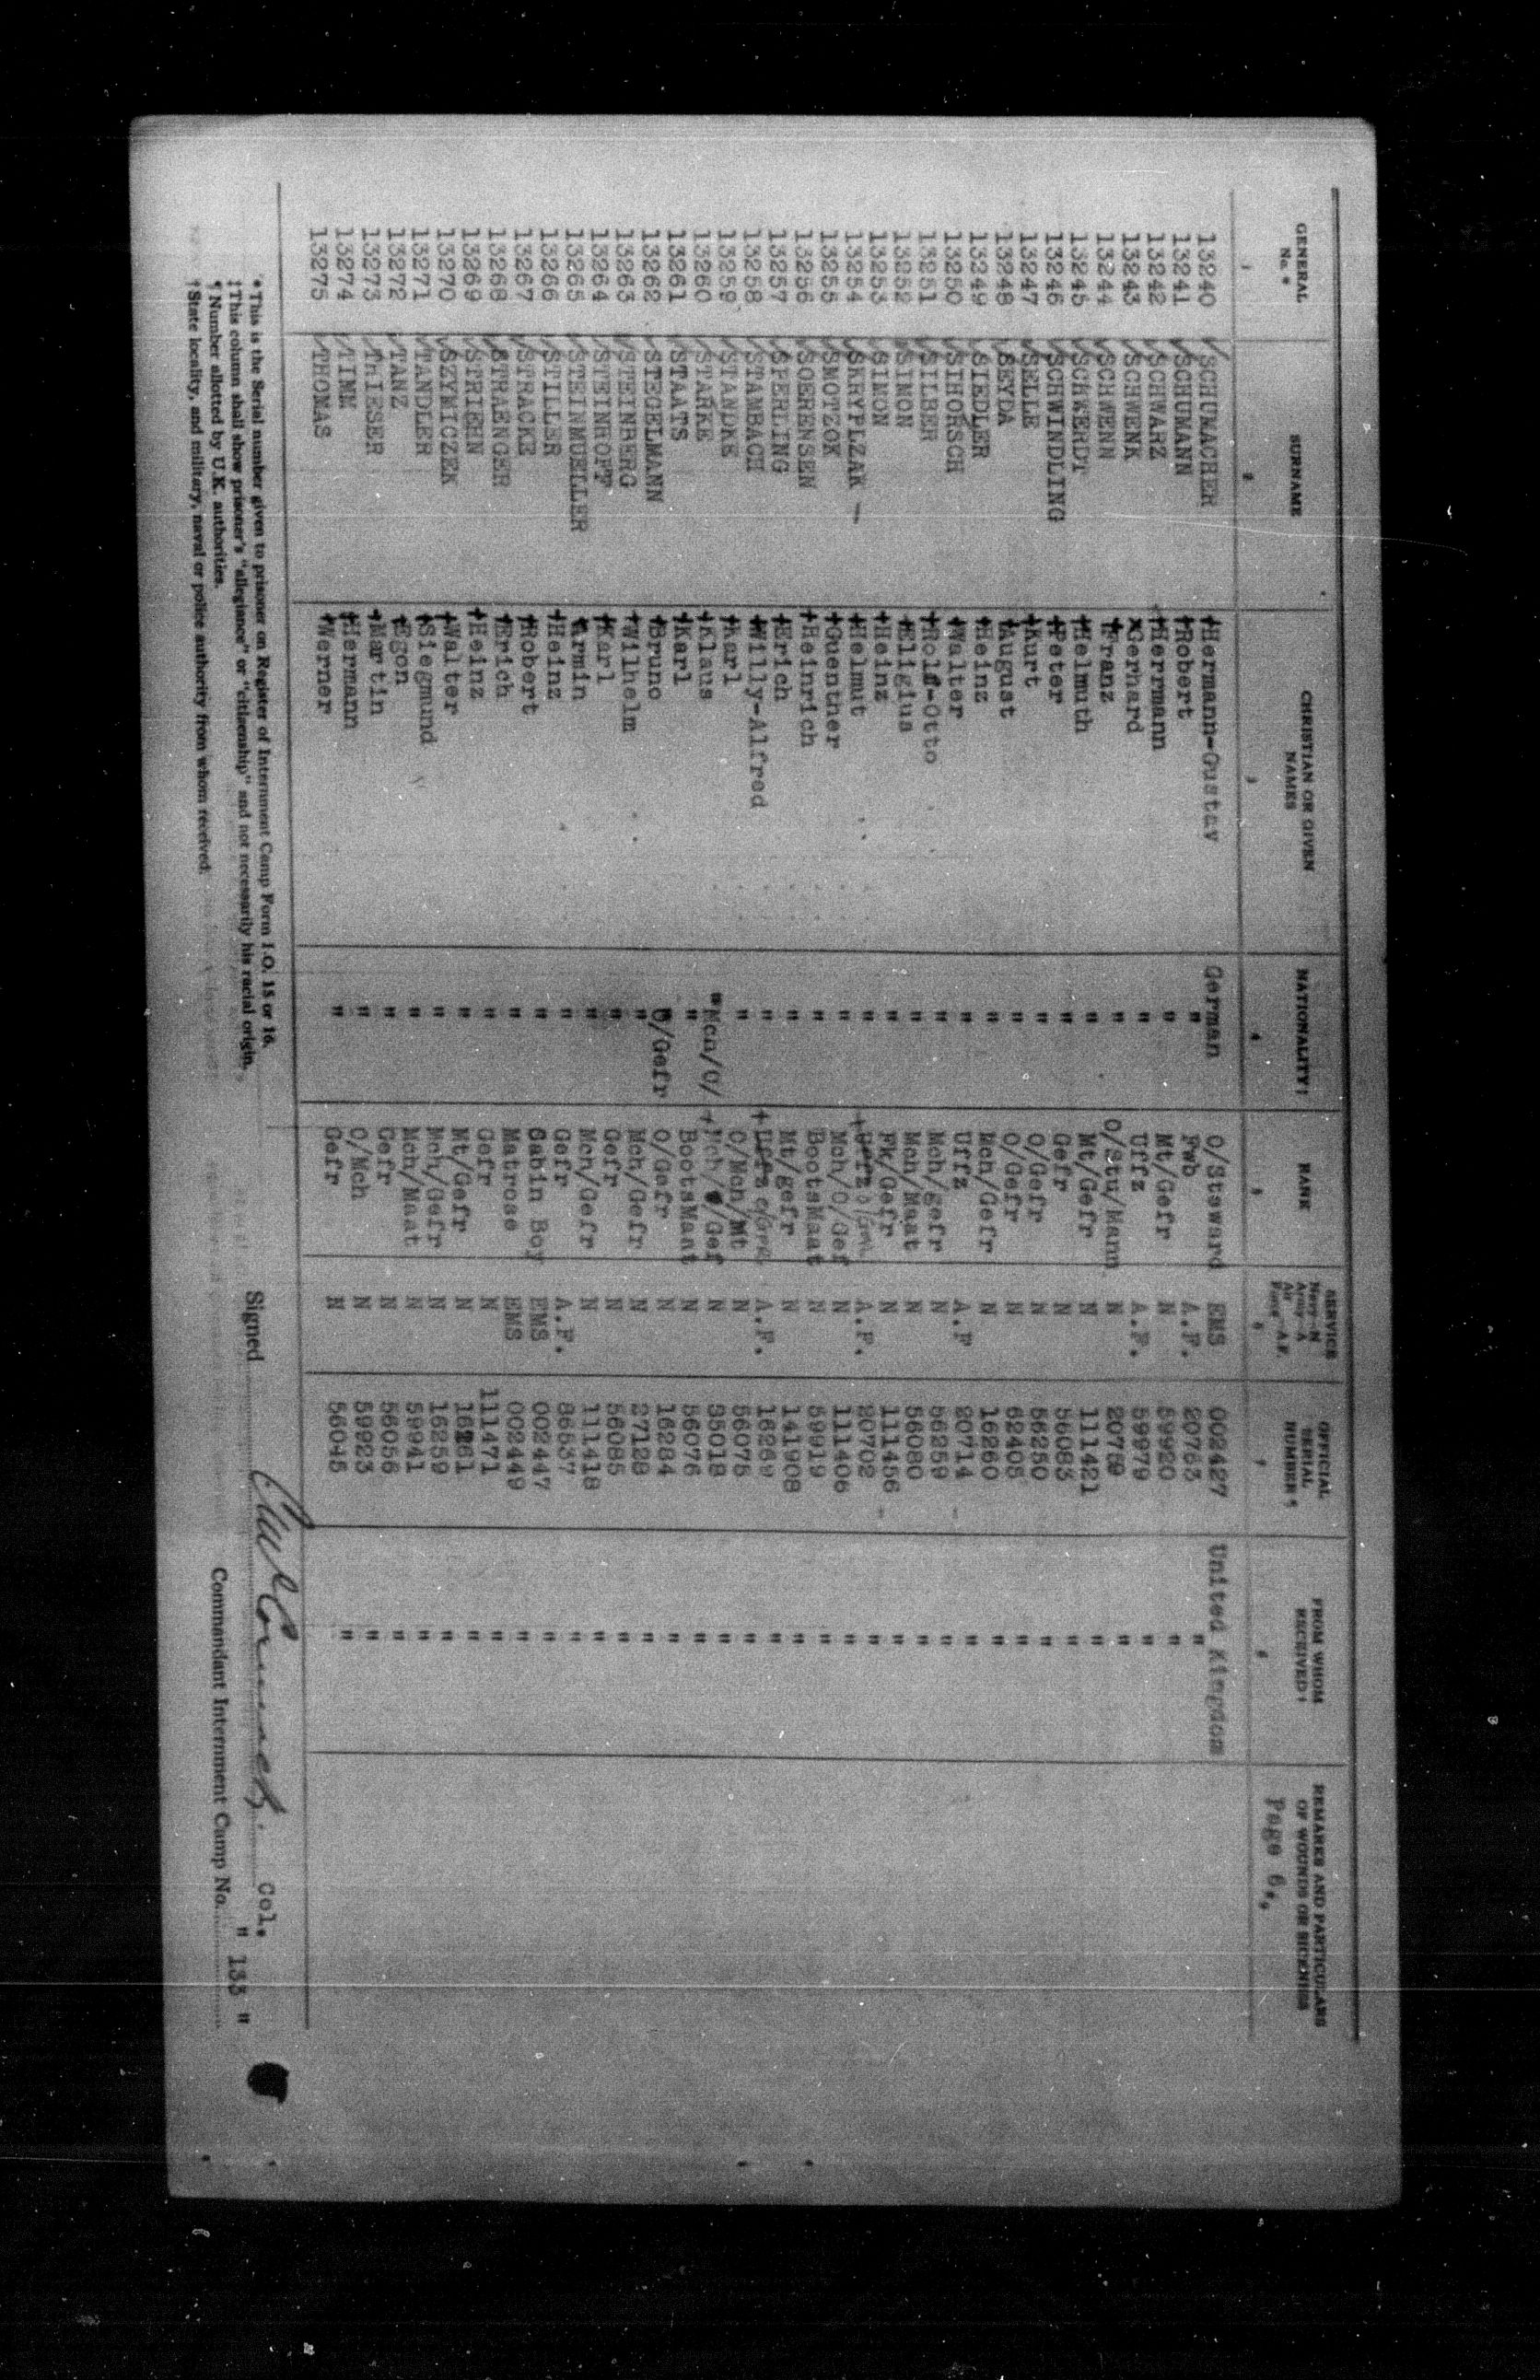 Page 6,,
GENERAL No. * SURNAME CHRISTIAN OR GIVEN NAMES NATIONALITY‡ RANK SERVICE Navy—N Army—A Air Force—A.F. OFFICIAL SERIAL NUMBER¶ FROM WHOM RECEIVED† REMARKS AND PARTICULARS OF WOUNDS OR SICKNESS
1 2 3 4 5 6 7 8
13240 SCHUMACHER Hermann-Gustav German O/Steward EMS 002427 United Kingdom
13241 SCHUMANN Robert " Fwb A.F. 20763 "
13242 SCHWARZ Herrmann " Mt/Gefr N 59920 "
13243 SCHWENK Gerhard " Uffz A.F. 59979 "
13244 SCHWENN Franz " O/Stu/Mann N 20759 "
13245 SCHWERDT Helmuth " Mt/Gefr N 111421 "
13246 SCHWINDLING Peter " Gefr N 56083 "
13247 SELLE Kurt " O/Gefr N 56250 "
13248 SEYDA August " O/Gefr N 62405 "
13249 SIEDLER Heinz " Mch/Gefr N 16260 "
13250 SIHORSCH Walter " Uffz A.F 20714 "
13251 SILBER Rolf-Otto " Mch/gefr N 56259 "
13252 SIMON Eligius " Mch/Maat N 56080 "
13253 SIMON Heinz " Fk/Gefr N 111456 "
13254 SKRYPLZAK Helmut " Uffz A.F. 20702 "
13255 SMOTZOK Guenther " Mch/O/Gef N 111406 "
13256 SOERENSEN Heinrich " BootsMaat N 59919 "
13257 SPERLING Erich " Mt/gefr N 141908 "
13258 STAMBACH Willy-Alfred " Uffz A.F. 16269 "
13259 STANDKE Karl " O/Mch/Mt N 56075 "
13260 STARKE Klaus " Mch/O/ Mch/ /Gef N 35018 "
13261 STAATS Karl " BootsMaat N 56076 "
13262 STEGELMANN Bruno O/Gefr O/Gefr N 16284 "
13263 STEINBERG Wilhelm " Mch/Gefr N 27128 "
13264 STEINHOFF Karl " Gefr N 56085 "
13265 STEINMUELLER Armin " Mch/Gefr N 111418 "
13266 STILLER Heinz " Gefr A.F. 86537 "
13267 STRACKE Robert " Cabin Boy EMS 002447 "
13268 STRAENGER Erich " Matrose EMS 002449 "
13269 STRIEHN Heinz " Gefr N 111471 "
13270 SZYMICZEK Walter " Mt/Gefr N 16261 "
13271 TANDLER Siegmund " Mch/Gefr N 16259 "
13272 TANZ Egon " Mch/Maat N 59941 "
13273 THIESER Martin " Gefr N 56056 "
13274 TIMM Hermann " O/Mch N 59923 "
13275 THOMAS Werner " Gefr N 56045 "
*This is the Serial number given to prisoner on Register of Internment Camp Form I.O. 15 or 16.
‡This column shall show prisoner's "allegiance" or "citizenship" and not necessarily his racial origin.
¶Number allotted by U.K. authorities.
†State locality, and military, naval or police authority from whom received.
Signed Col.
Commandant Internment Camp No. " 133 "